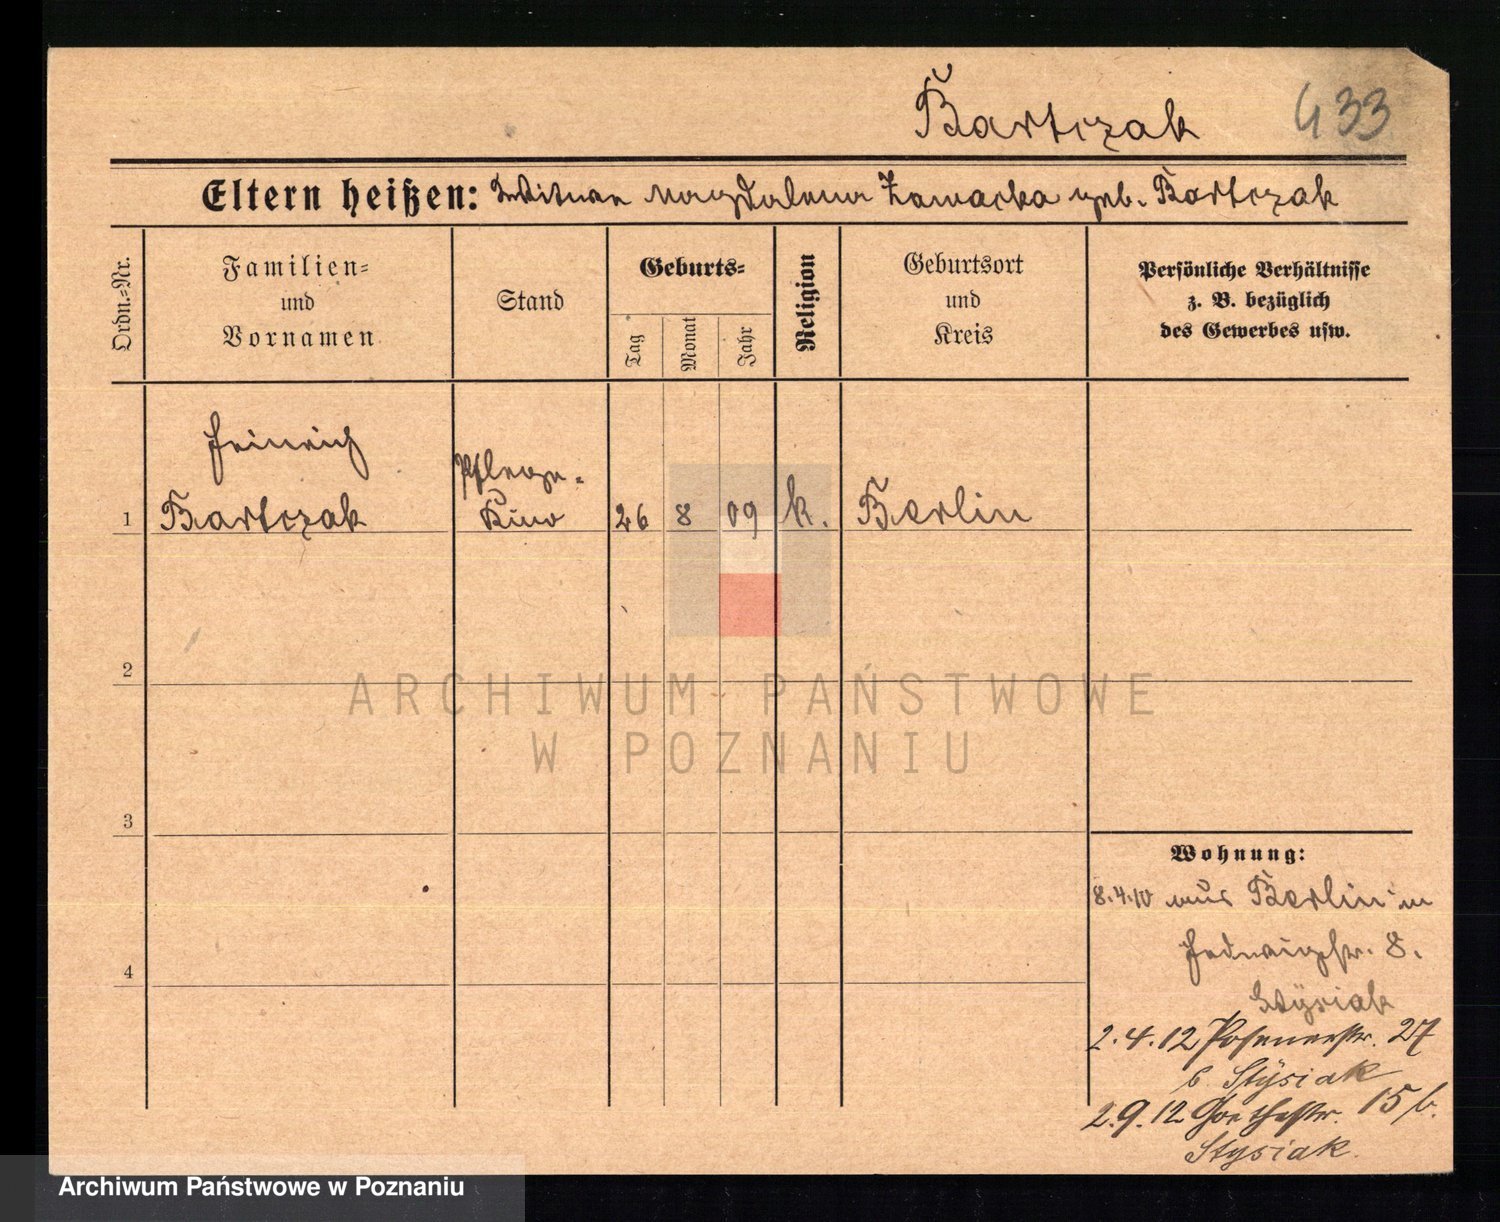 Bartczak 433
Eltern heißen: Witwe Magdalena Zawacka geb. Bartczak
Ordn.-Nr.
Familien-
und
Vornamen
Stand
Geburts-
Tag
Monat
Jahr
Religion
Geburtsort
und
Kreis
Persönliche Verhältnisse
z. B. bezüglich
des Gewerbes usw.
Heinrich
Pflege-
1 Bartczak Kind 26 8 09 k. Berlin
2
3
4
Wohnung:
8.4.10 aus Berlin in
Hedwigstr. 8.
Stÿsiak
2.4.12 Posenerstr. 27
b. Stÿsiak
2.9.12 Goethestr. 15 b.
Stysiak.
ARCHIWUM PAŃSTWOWE
W POZNANIU
Archiwum Państwowe w Poznaniu